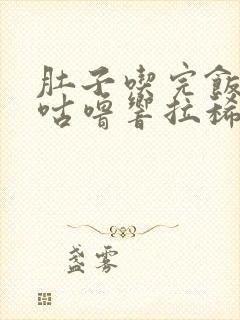 肚子喫完飯
咕嚕響拉稀
盞雾